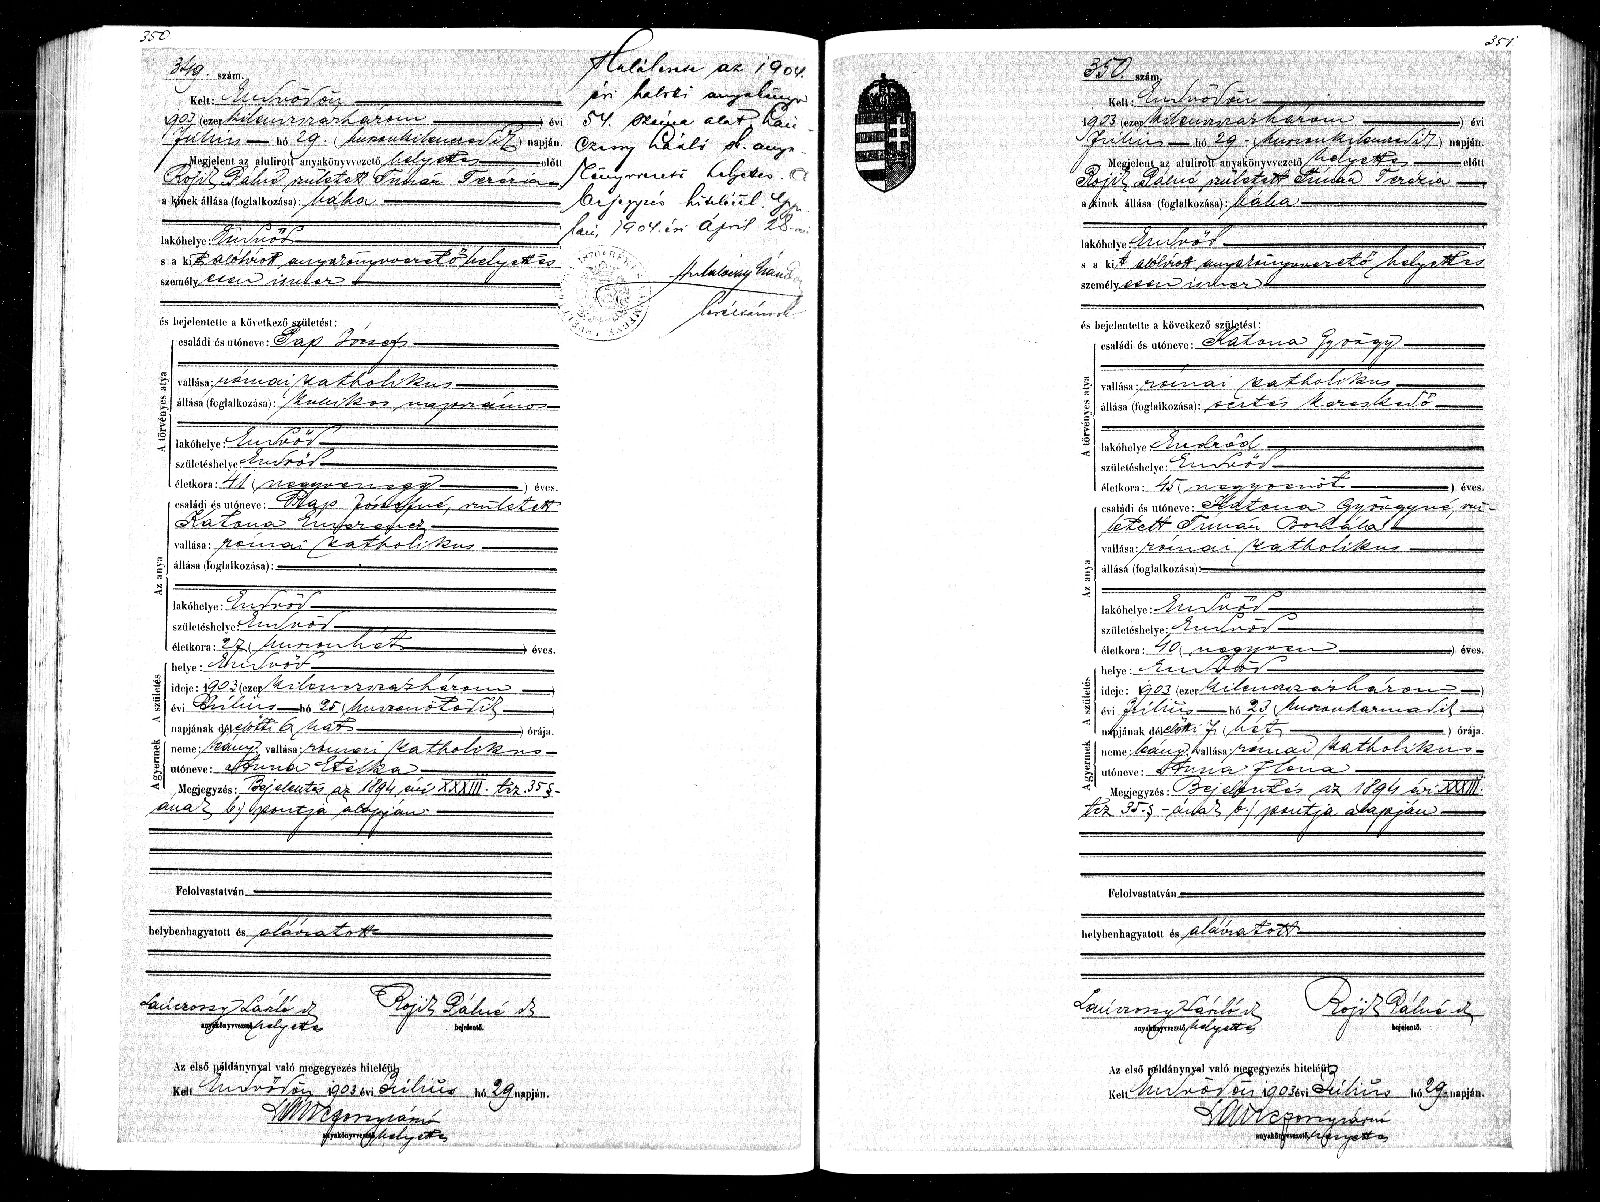 350
349. szám.
Kelt: Endrődön
1903 (ezer kilenczszázhárom) évi
Július hó 29. (huszonkilenczedik) napján.
Megjelent az alulirott anyakönyvvezető helyettes előtt
Rojik Pálné született Tímár Terézia
a kinek állása (foglalkozása): bába
lakóhelye: Endrőd
s a kit alólirott anyakönyvvezető helyettes
személyesen ismer
és bejelentette a következő születést:
A törvényes atya
családi és utóneve: Pap József
vallása: római katholikus
állása (foglalkozása): napszámos
lakóhelye: Endrőd
születéshelye: Endrőd
életkora: 41 (negyvenegy) éves.
Az anya
családi és utóneve: Pap Józsefné, született
Katona Emerencz
vallása: római katholikus
állása (foglalkozása):
lakóhelye: Endrőd
születéshelye: Endrőd
életkora: 27 (huszonhét) éves.
A születés
helye: Endrőd
ideje: 1903 (ezer kilenczszázhárom)
évi Július hó 25 (huszonötödik)
napjának délelőtti 6 (hat) órája.
A gyermek
neme: leány, vallása: római katholikus
utóneve: Anna Etelka
Megjegyzés: Bejelentés az 1894 évi XXXIII. tcz. 35 §-
ának b) pontja alapján
Felolvastatván
helybenhagyatott és aláiratott
Lanczossy László sk
anyakönyvvezető helyettes
Rojik Pálné sk
bejelentő.
Az első példánynyal való megegyezés hiteléül
Kelt Endrődön 1903 évi Július hó 29 napján.
anyakönyvvezető helyettes
az 1904.
évi halotti anyakönyv
54. száma alatt
László sk. anya-
könyvvezető helyettes. A
bejegyzés hiteléül. Gyu-
lán, 1904. évi április 28-án
351
350. szám.
Kelt: Endrődön
1903 (ezer kilenczszázhárom) évi
Július hó 29. (huszonkilenczedik) napján.
Megjelent az alulirott anyakönyvvezető helyettes előtt
Rojik Pálné született Tímár Terézia
a kinek állása (foglalkozása): bába
lakóhelye: Endrőd
s a kit alólirott anyakönyvvezető helyettes
személyesen ismer
és bejelentette a következő születést:
A törvényes atya
családi és utóneve: Katona György
vallása: római katholikus
állása (foglalkozása): sertés kereskedő
lakóhelye: Endrőd
születéshelye: Endrőd
életkora: 45 (negyvenöt) éves.
Az anya
családi és utóneve: Katona Györgyné, szü-
letett Tímár Borbála
vallása: római katholikus
állása (foglalkozása):
lakóhelye: Endrőd
születéshelye: Endrőd
életkora: 40 (negyven) éves.
A születés
helye: Endrőd
ideje: 1903 (ezer kilenczszázhárom)
évi Július hó 23 (huszonharmadik)
napjának délelőtti 7 (hét) órája.
A gyermek
neme: leány, vallása: római katholikus
utóneve: Anna Ilona
Megjegyzés: Bejelentés az 1894 évi XXXIII.
tcz 35 §-ának b) pontja alapján
Felolvastatván
helybenhagyatott és aláiratott
Lanczossy László sk
anyakönyvvezető helyettes
Rojik Pálné sk
bejelentő.
Az első példánynyal való megegyezés hiteléül
Kelt Endrődön 1903 évi Július hó 29 napján.
anyakönyvvezető helyettes